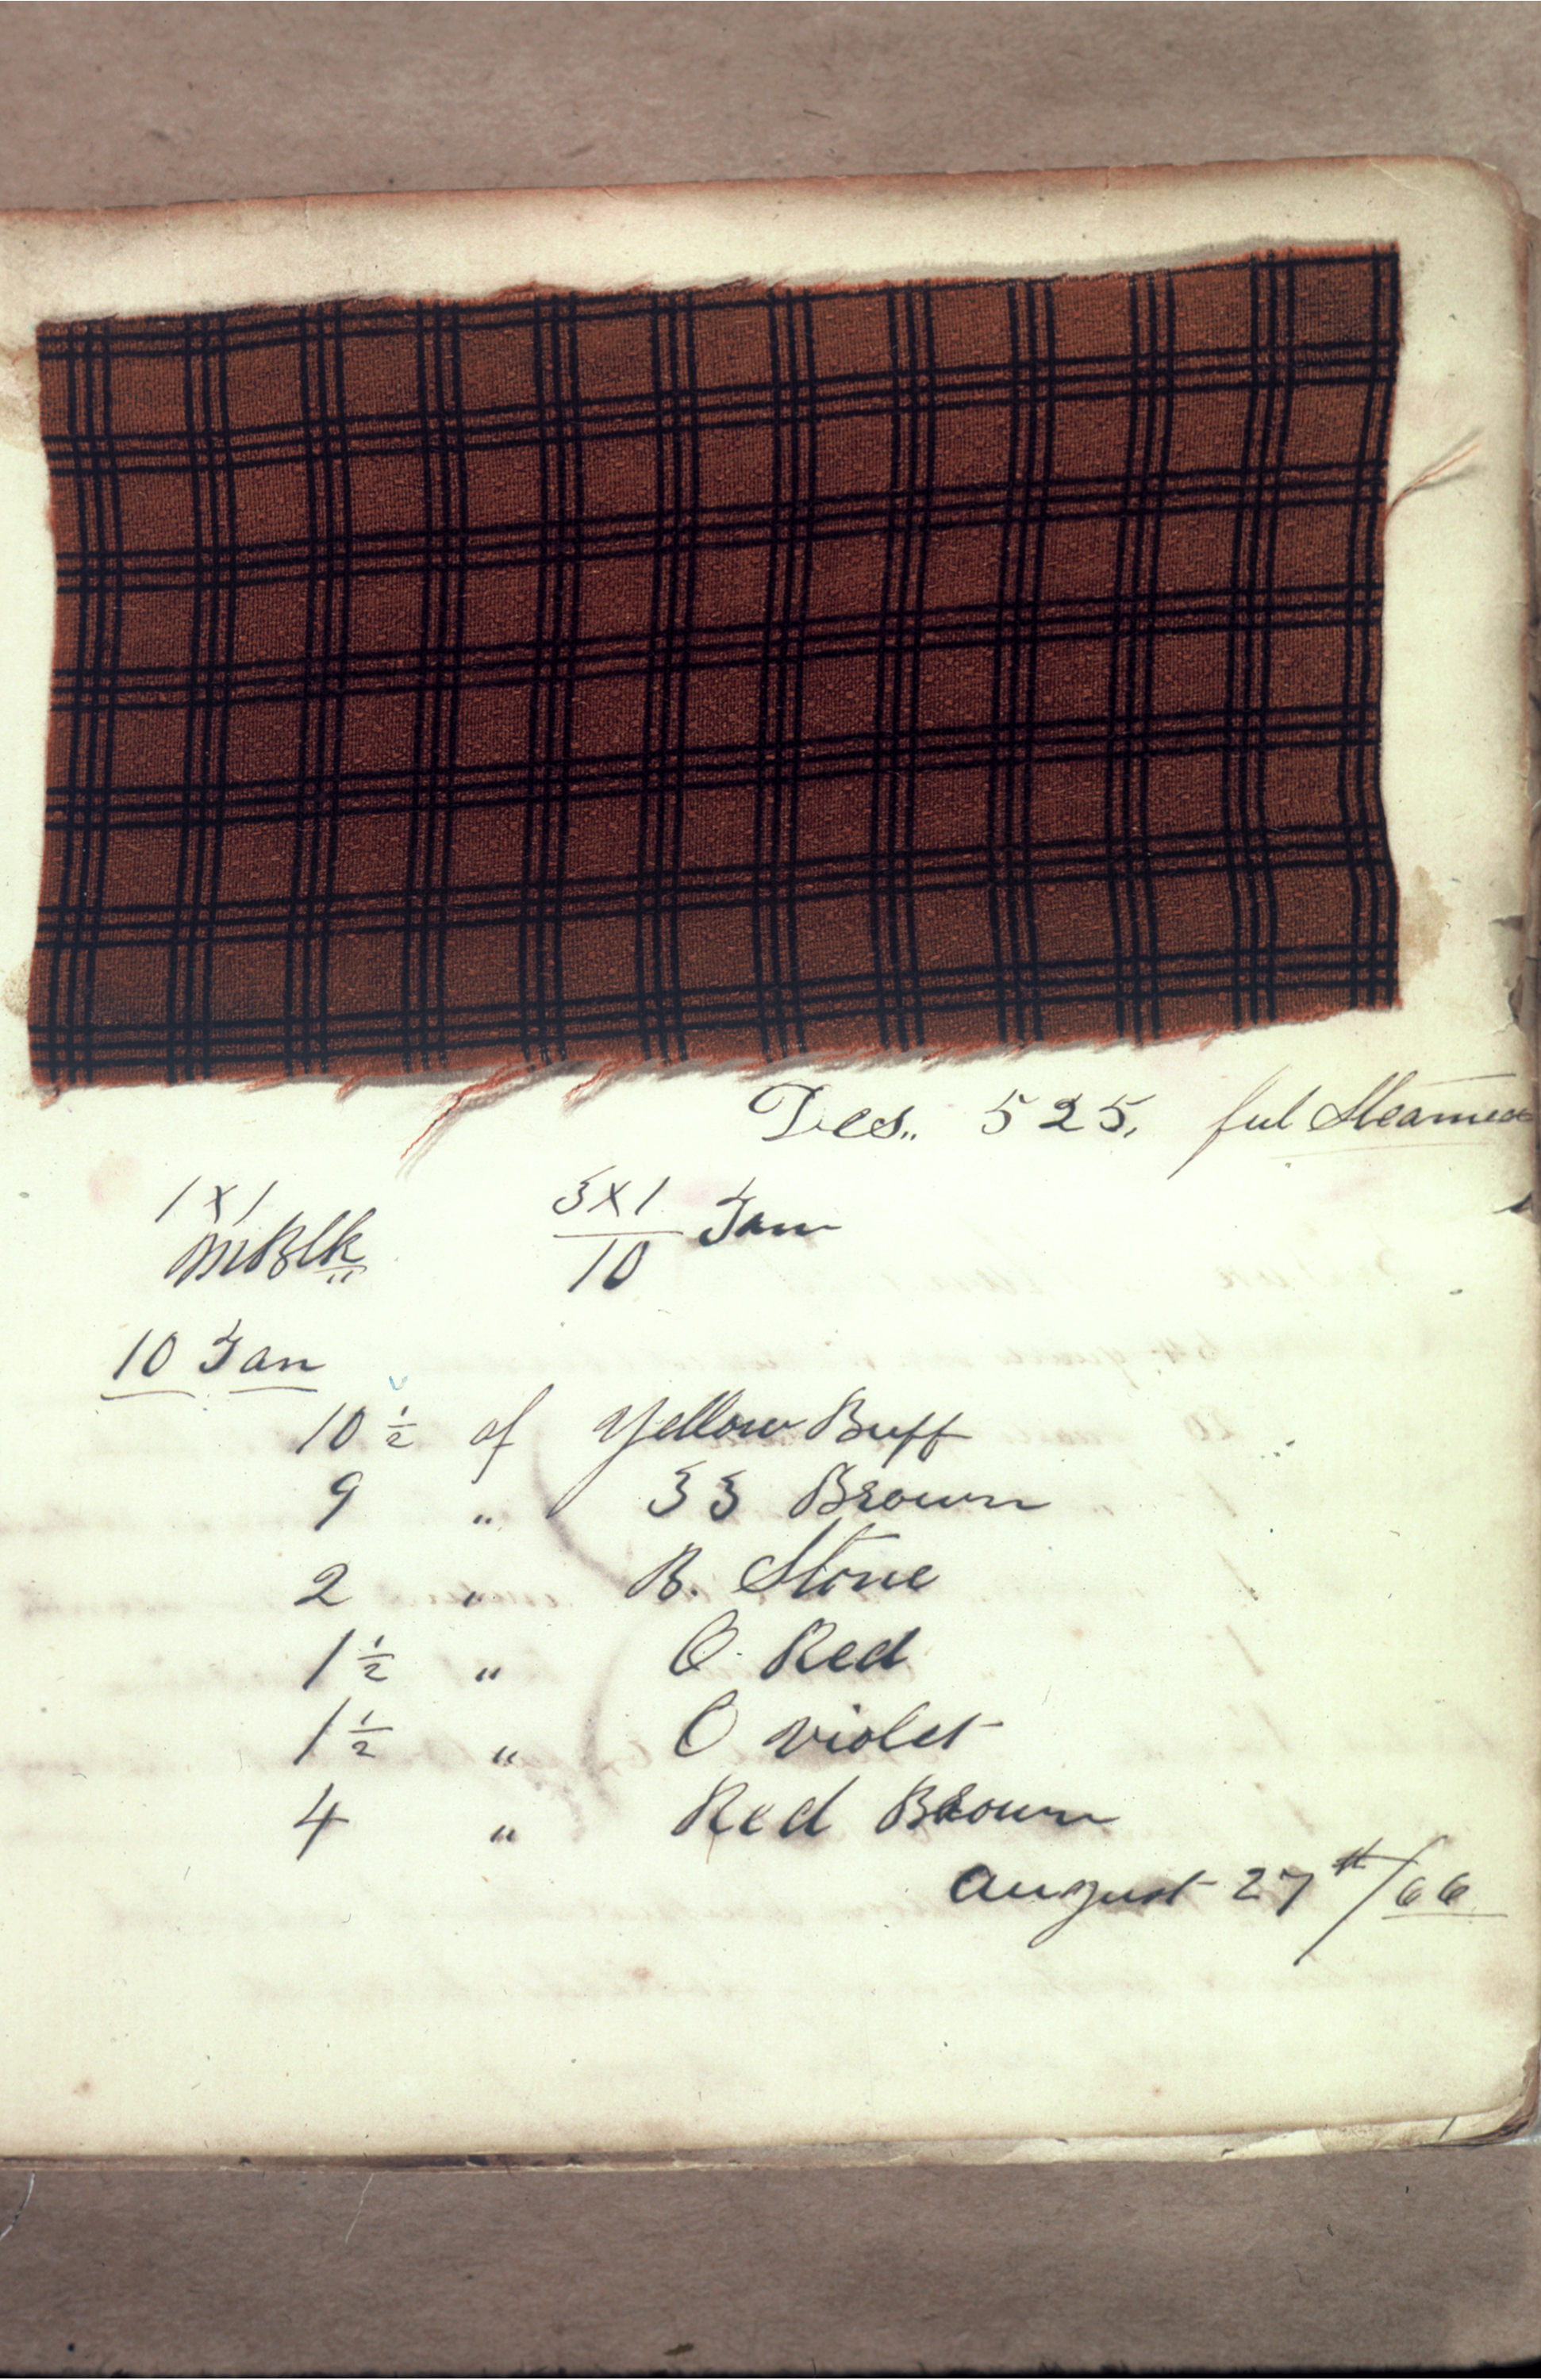 Des.. 525, ful Steamed
1 x 1
MBlk
3 x 1
10 Tan
10 Tan
10 1/2 of Yellow Buff
9 " 33 Brown
2 " B. Stone
1 1/2 " O. Red
1 1/2 " O violet
4 " Red Brown
august 27th/66